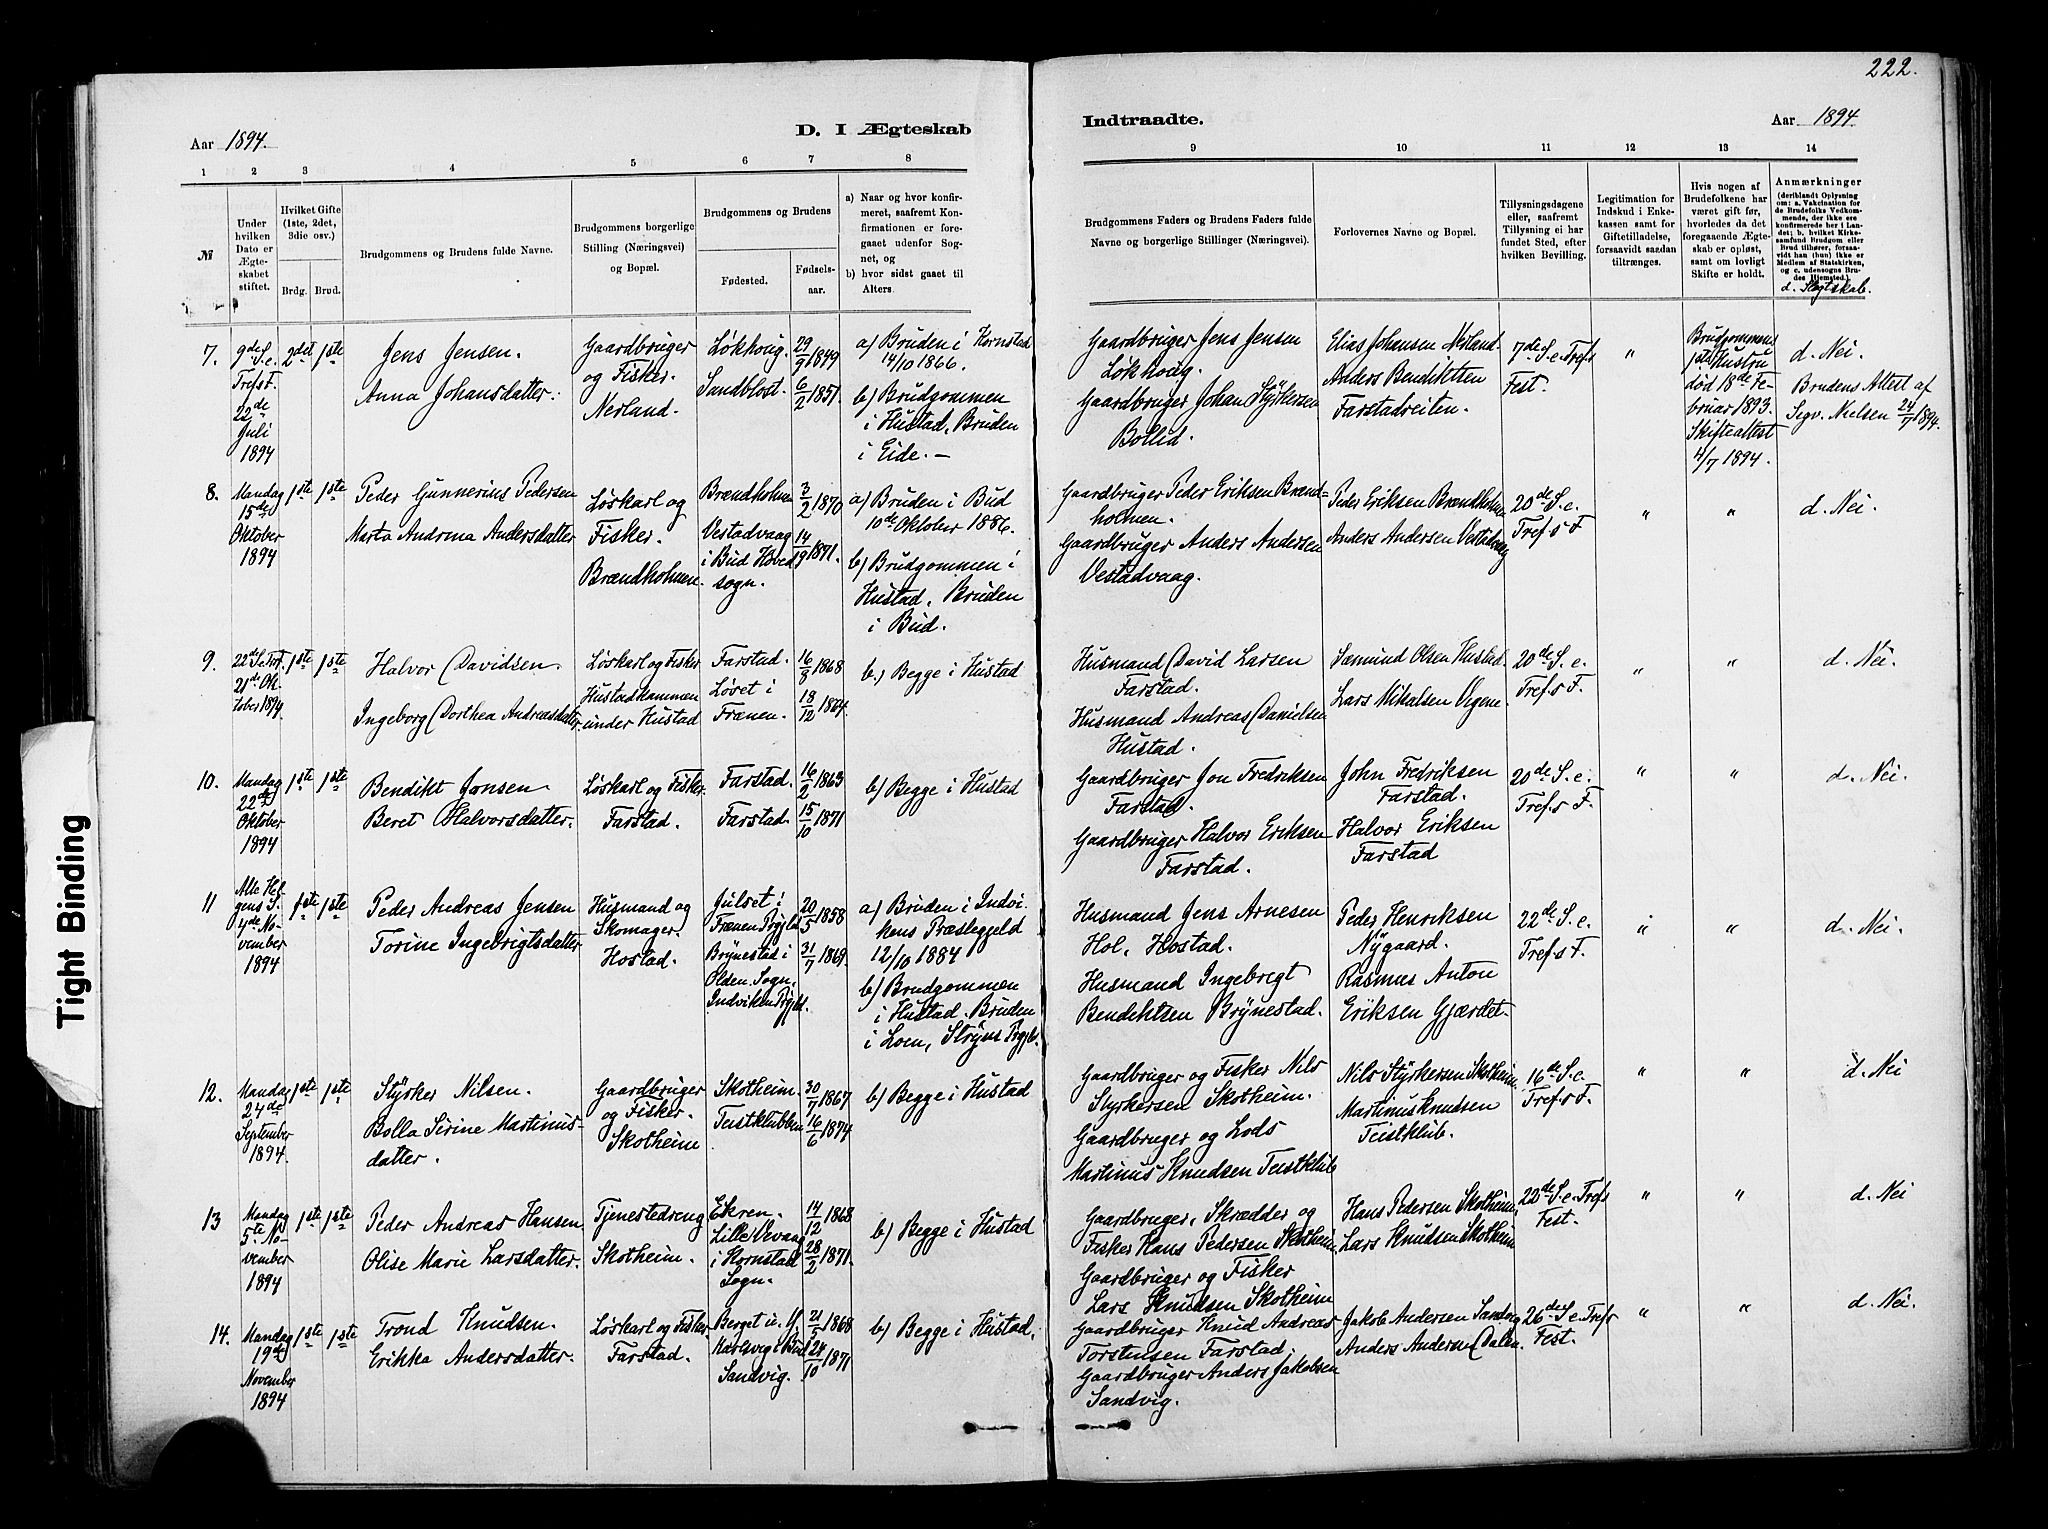 222.
Aar 1894.
D. I Ægteskab
Indtraadte.
Aar 1894.
1 2 3 4 5 6 7 8 9 10 11 12 13 14
№
Under hvilken Dato er Ægteskabet stiftet.
Hvilket Gifte (1ste, 2det, 3die osv.)
Brdg. Brud.
Brudgommens og Brudens fulde Navne.
Brudgommens borgerlige Stilling (Næringsvei) og Bopæl.
Brudgommens og Brudens
Fødested.
Fødselsaar.
a) Naar og hvor konfirmeret, saafremt Konfirmationen er foregaaet udenfor Sognet, og
b) hvor sidst gaaet til Alters.
Brudgommens Faders og Brudens Faders fulde Navne og borgerlige Stillinger (Næringsvei).
Forlovernes Navne og Bopæl.
Tillysningsdagene eller, saafremt Tillysning ei har fundet Sted, efter hvilken Bevilling.
Legitimation for Indskud i Enkekassen samt for Giftetilladelse, forsaavidt saadan tiltrænges.
Hvis nogen af Brudefolkene har været gift før, hvorledes da det foregaaende Ægteskab er opløst, samt om lovligt Skifte er holdt.
Anmærkninger
(deriblandt Oplysning om: a. Vakcination for de Brudefolks Vedkommende, der ikke ere konfirmerede her i Landet; b. hvilket Kirkesamfund Brudgom eller Brud tilhører, forsaavidt han (hun) ikke er Medlem af Statskirken, og c. udensogns Brudes Hjemsted.)
d. Slægtskab.
7.
9de S. e. Tref. F. 22de Juli 1894
2det 1ste
Jens Jensen.
Anna Johansdatter.
Gaardbruger og Fisker. Nerland.
Løkhoug. 29/9 1849
Sandblost. 6/2 1851.
a) Bruden i Kornstad 14/10 1866.
b) Brudgommen i Hustad, Bruden i Eide. –
Gaardbruger Jens Jensen Løkhoug.
Gaardbruger Johan Styrkersen Bollid.
Elias Johansen Nerland.
Anders Bendiktsen Farstadreiten.
7de S. e. Tref.s Fest.
"
Brudgommens 1ste Hustru død 18de Februar 1893. Skifteattest 4/7 1894.
d. Nei.
Brudens Attest af Sogv. Nielsen 24/7 1894.
8.
Mandag 15de Oktober 1894
1ste 1ste
Peder Gunnerius Pedersen
Marta Andrina Andersdatter
Løskarl og Fisker. Brændholmen.
Brændholmen 3/2 1870
Vestadvaag i Bud Hovedsogn. 14/9 1871.
a) Bruden i Bud 10de Oktober 1886.
b) Brudgommen i Hustad, Bruden i Bud.
Gaardbruger Peder Eriksen Brændholmen.
Gaardbruger Anders Andersen Vestadvaag.
Peder Eriksen Brændholmen
Anders Andersen Vestadvaag
20de S. e. Tref.s F
" "
d. Nei.
9.
22de S. e. Tref. 21de Oktober 1894
1ste 1ste
Halvor Davidsen.
Ingeborg Dorthea Andreasdatter.
Løskarl og Fisker Hustadkammen under Hustad
Farstad. 16/8 1868
Løvet i Frænen. 18/12 1864.
b.) Begge i Hustad
Husmand David Larsen Farstad.
Husmand Andreas Danielsen Hustad.
Sæmund Olsen Hustad.
Lars Mikalsen Vigene.
20de S. e. Tref.s F.
" "
d. Nei.
10.
Mandag 22de Oktober 1894
1ste 1ste
Bendikt Jonsen.
Beret Halvorsdatter.
Løskarl og Fisker. Farstad.
Farstad. 16/2 1863
Farstad. 15/10 1871
b) Begge i Hustad
Gaardbruger Jon Fredriksen Farstad.
Gaardbruger Halvor Eriksen Farstad.
John Fredriksen Farstad.
Halvor Eriksen Farstad
20de S. e. Tref.s F.
" "
d. Nei.
11
Alle Helgens S. 4de November 1894
1ste 1ste
Peder Andreas Jensen
Torine Ingebrigtsdatter
Husmand og Skomager. Hostad.
Julset i Frænen Prgjld 20/5 1858
Brynestad i Olden Sogn, Indviken Prgjld. 31/7 1869.
a) Bruden i Indvikens Præstegjeld 12/10 1884
b) Brudgommen i Hustad. Bruden i Loen, Stryns Prgjld.
Husmand Jens Arnesen Hol, Hostad.
Husmand Ingebrigt Bendiktsen Brynestad.
Peder Henriksen Nygaard.
Rasmus Anton Eriksen Gjærdet.
22de S. e. Tref.s F.
" "
d. Nei.
12.
Mandag 24de September 1894.
1ste 1ste
Styrker Nilsen.
Bolla Sirine Martinusdatter.
Gaardbruger og Fisker. Skotheim
Skotheim. 30/7 1867
Teistklubben 16/6 1874
b) Begge i Hustad
Gaardbruger og Fisker Nils Styrkersen Skotheim.
Gaardbruger og Lods Martinus Knudsen Teistklub
Nils Styrkersen Skotheim.
Martinus Knudsen Teistklub.
16de S. e. Tref.s F.
" "
d. Nei
13
Mandag 5te November 1894
1ste 1ste
Peder Andreas Hansen
Olise Marie Larsdatter.
Tjenestedreng Skotheim.
Ekren. 14/12 1868
Lille Vevang i Kornstad Sogn. 28/2 1871.
b) Begge i Hustad
Gaardbruger, Skrædder og Fisker Hans Pedersen Skotheim.
Gaardbruger og Fisker Lars Knudsen Skotheim
Hans Pedersen Skotheim,
Lars Knudsen Skotheim
22de S. e. Tref.s Fest.
" "
d. Nei
14.
Mandag 19de November 1894
1ste 1ste
Trond Knudsen.
Erikka Andersdatter.
Løskarl og Fisker Farstad.
Berget u. Karlsvig i Bud 21/5 1868
Sandvig. 24/10 1871
b) Begge i Hustad.
Gaardbruger Knud Andreas Torstensen Farstad.
Gaardbruger Anders Jakobsen Sandvig.
Jakob Andersen Sandvig
Anders Andersen Dalen.
26de S. e. Tref.s Fest.
" "
d. Nei.
Tight Binding